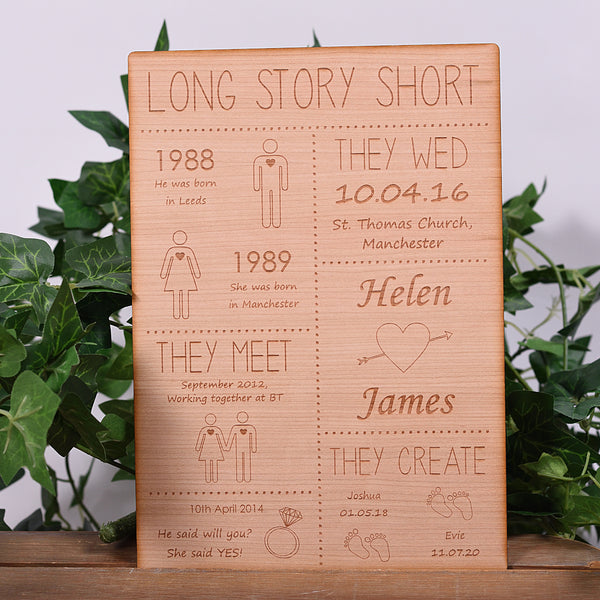 LONG STORY SHORT
1988
He was born
in Leeds
1989
She was born
in Manchester
THEY MEET
September 2012,
Working together at BT
10th April 2014
He said will you?
She said YES!
THEY WED
10.04.16
St. Thomas Church,
Manchester
Helen
James
THEY CREATE
Joshua
01.05.18
Evie
11.07.20